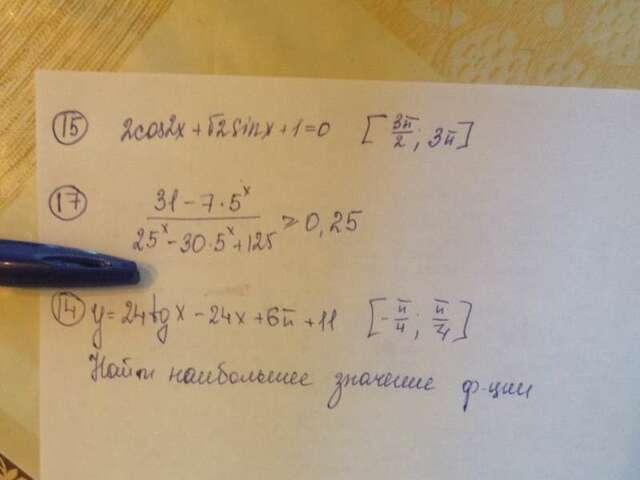 15 2cos2x+√2sinx+1=0 [3π/2; 3π]
17 (31-7·5^x)/(25^x-30·5^x+125) ≥ 0,25
14 y=24tgx-24x+6π+11 [-π/4; π/4]
Найти наибольшее значение ф-ции